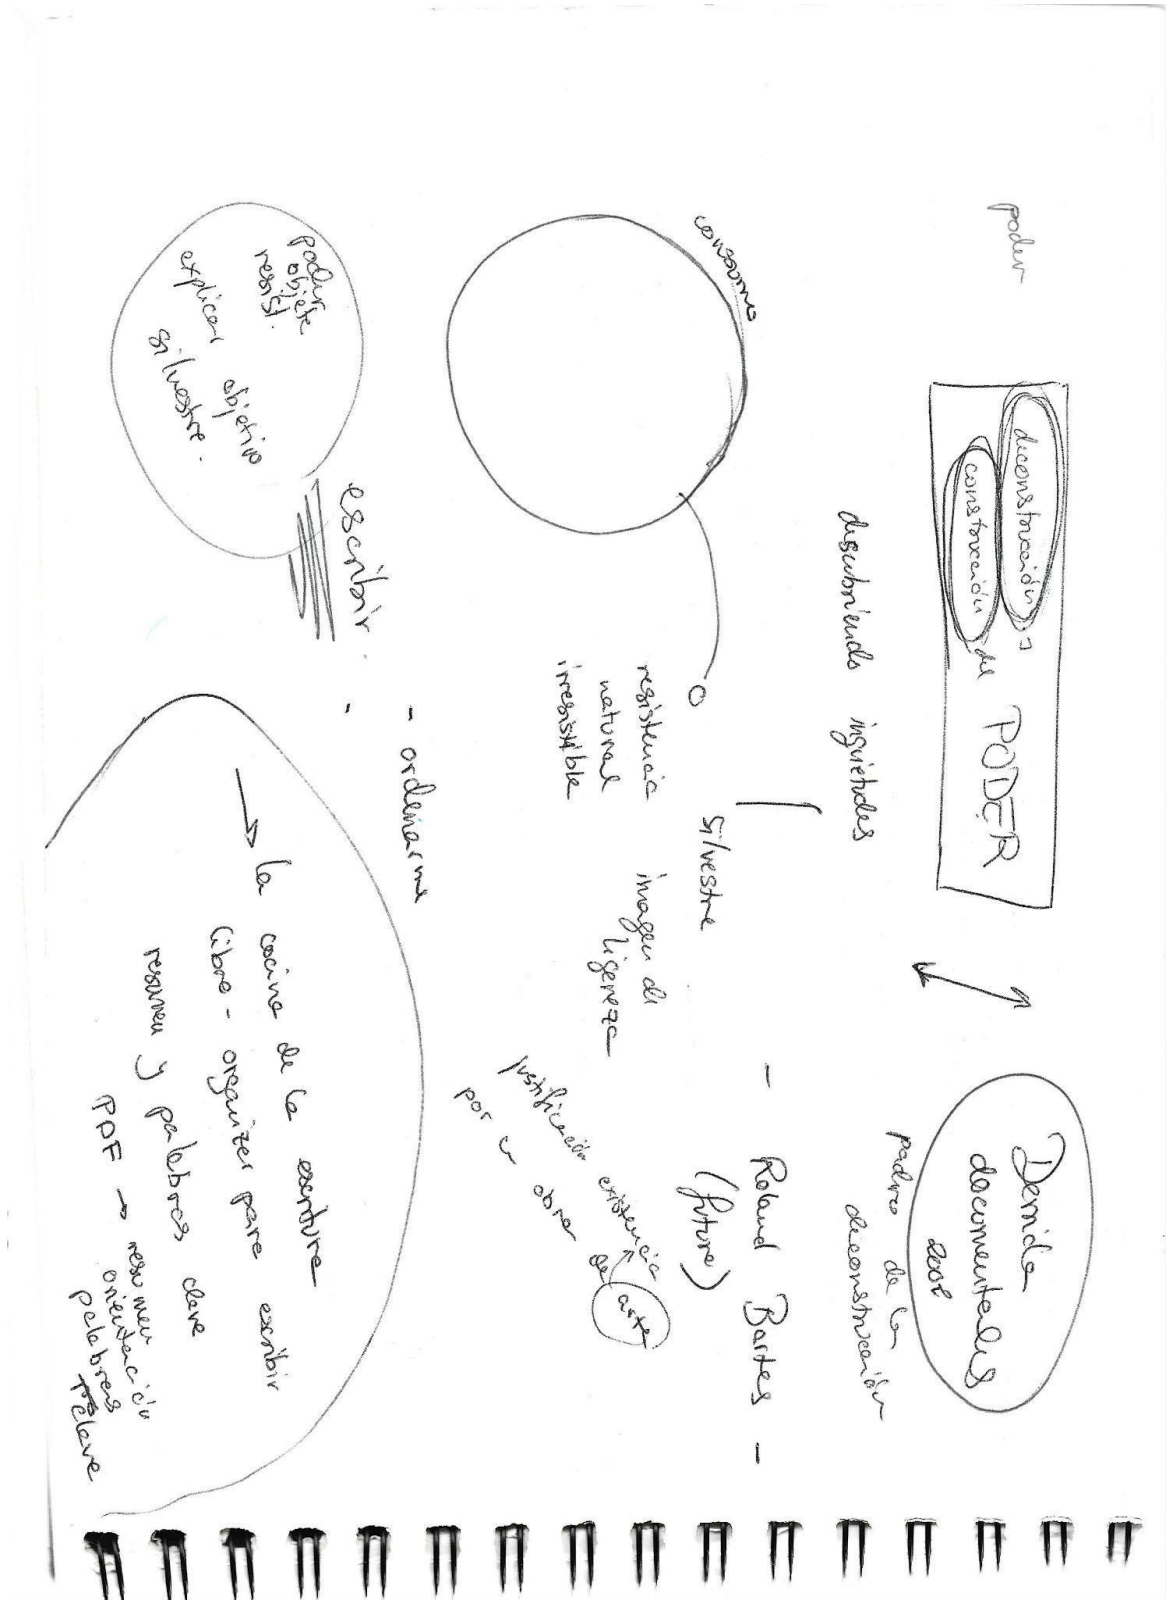 poder
deconstrucción y
construcción del PODER
Derrida
documentales
2008
padre de la
deconstrucción
descubriendo inquietudes
- Roland Bartes -
(futuro)
consumo
silvestre
resistencia
natural
irresistible
imagen de
ligereza
justificación existencia
por la obra de arte
escribir.
- ordenarme
-
poder
objete
resist.
explicar objetivo
silvestre.
→ la cocina de la escritura
libro - organizar para escribir
resumen y palabras clave
PDF → resumen
orientación
palabras
clave